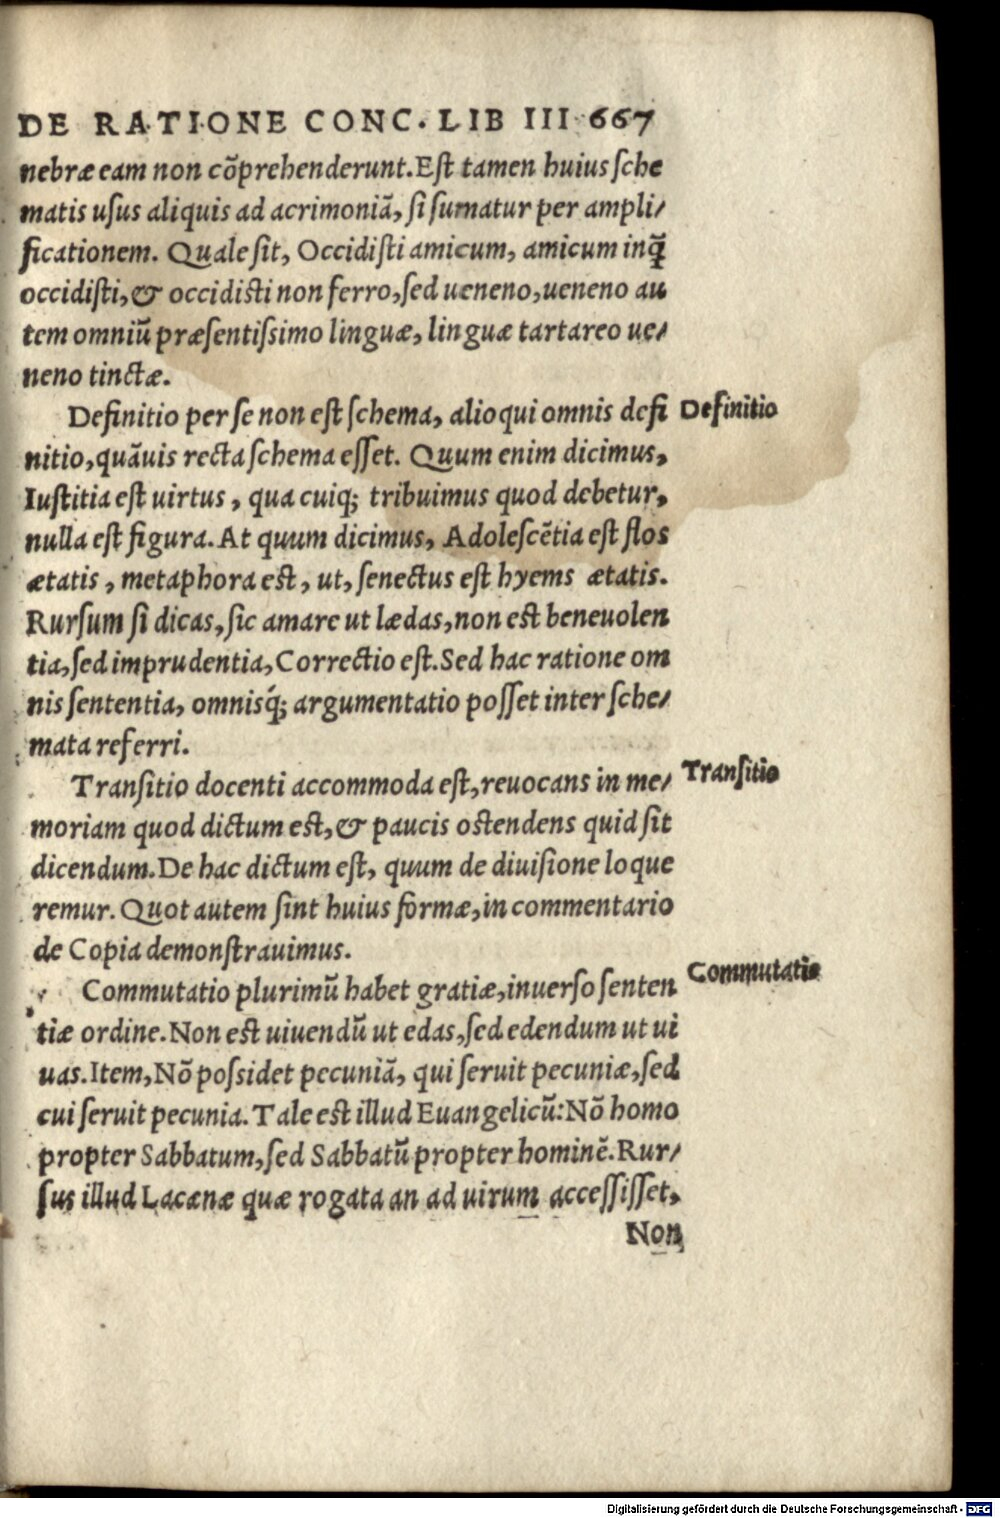 DE RATIONE CONC. LIB III 667
nebræ eam non cõprehenderunt. Est tamen huius sche
matis usus aliquis ad acrimoniã, si sumatur per ampli/
ficationem. Quale sit, Occidisti amicum, amicum inq̃
occidisti, & occidisti non ferro, sed ueneno, ueneno au
tem omniũ præsentissimo linguæ, linguæ tartareo ue/
neno tinctæ.
Definitio per se non est schema, alioqui omnis defi
Definitio
nitio, quãuis recta schema esset. Quum enim dicimus,
Iustitia est uirtus, qua cuiq; tribuimus quod debetur,
nulla est figura. At quum dicimus, Adolescẽtia est flos
ætatis, metaphora est, ut, senectus est hyems ætatis.
Rursum si dicas, sic amare ut lædas, non est beneuolen
tia, sed imprudentia, Correctio est. Sed hac ratione om
nis sententia, omnisq́; argumentatio posset inter sche/
mata referri.
Transitio docenti accommoda est, reuocans in me/
Transitio
moriam quod dictum est, & paucis ostendens quid sit
dicendum. De hac dictum est, quum de diuisione loque
remur. Quot autem sint huius formæ, in commentario
de Copia demonstrauimus.
Commutatio plurimũ habet gratiæ, inuerso senten
Commutatio
tiæ ordine. Non est uiuendũ ut edas, sed edendum ut ui
uas. Item, Nõ possidet pecuniã, qui seruit pecuniæ, sed
cui seruit pecunia. Tale est illud Euangelicũ: Nõ homo
propter Sabbatum, sed Sabbatũ propter hominẽ. Rur/
sus illud Lacænæ quæ rogata an ad uirum accessisset,
Non
Digitalisierung gefördert durch die Deutsche Forschungsgemeinschaft - DFG